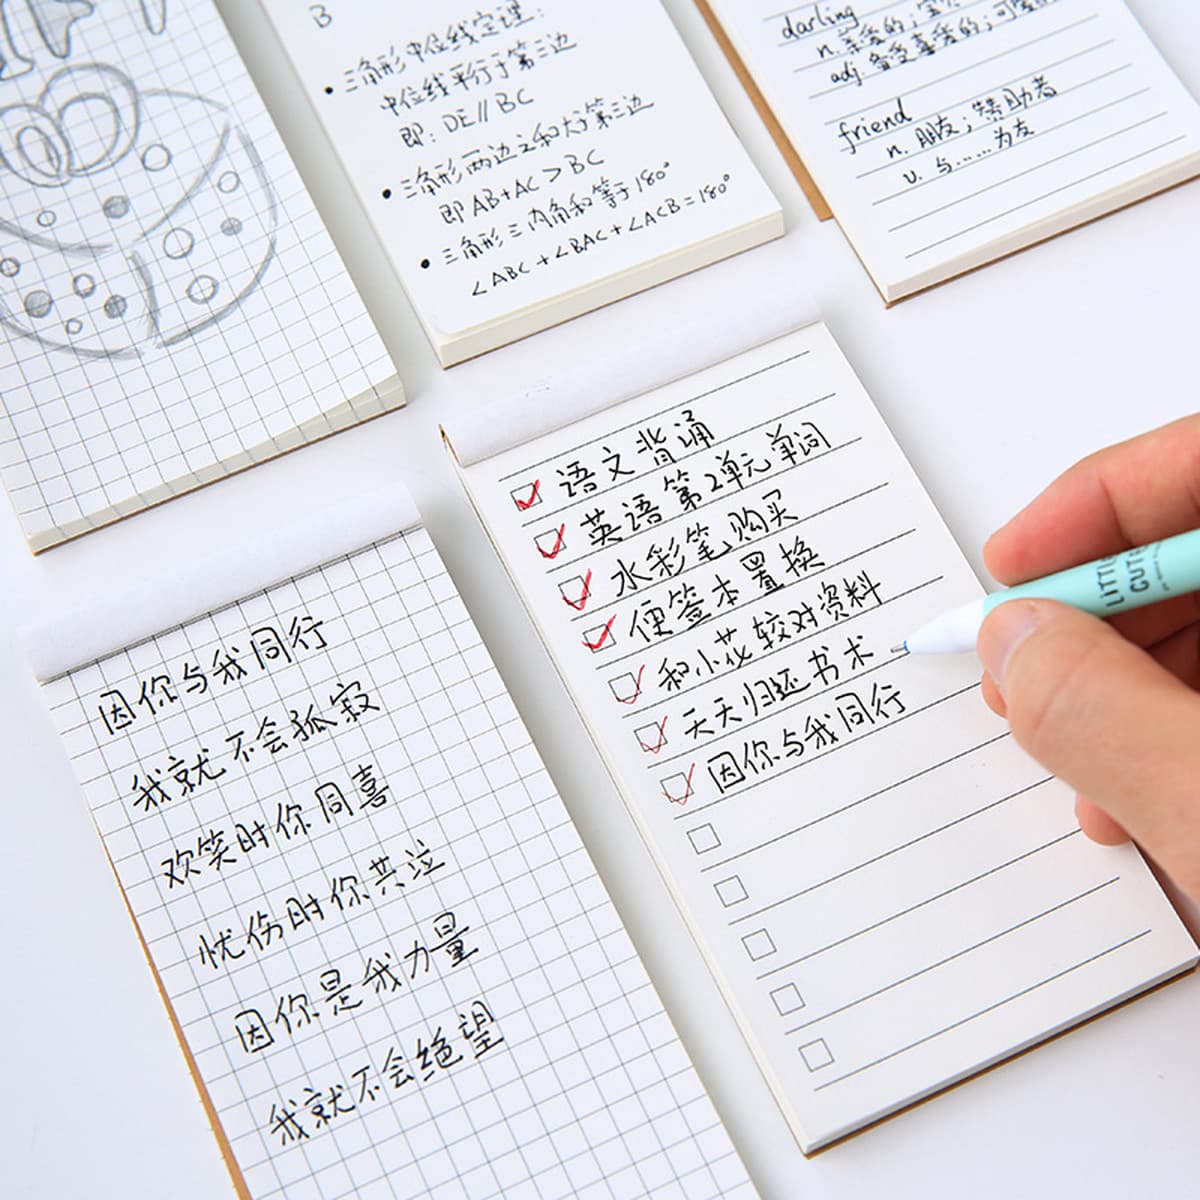 B
三角形中位线定理:
中位线平行于第三边
即: DE//BC
三角形两边之和大于第三边
即 AB+AC>BC
三角形三内角和等于180°
∠ABC+∠BAC+∠ACB=180°
darling
n. 亲爱的; 宝贝
adj. 备受喜爱的; 可爱的
friend
n. 朋友; 赞助者
v. 与……为友
语文背诵
英语第2单元单词
水彩笔购买
便签本置换
和小花较对资料
天天归还书术
因你与我同行
因你与我同行
我就不会孤寂
欢笑时你同喜
忧伤时你共泣
因你是我力量
我就不会绝望
LITTLE
CUTE